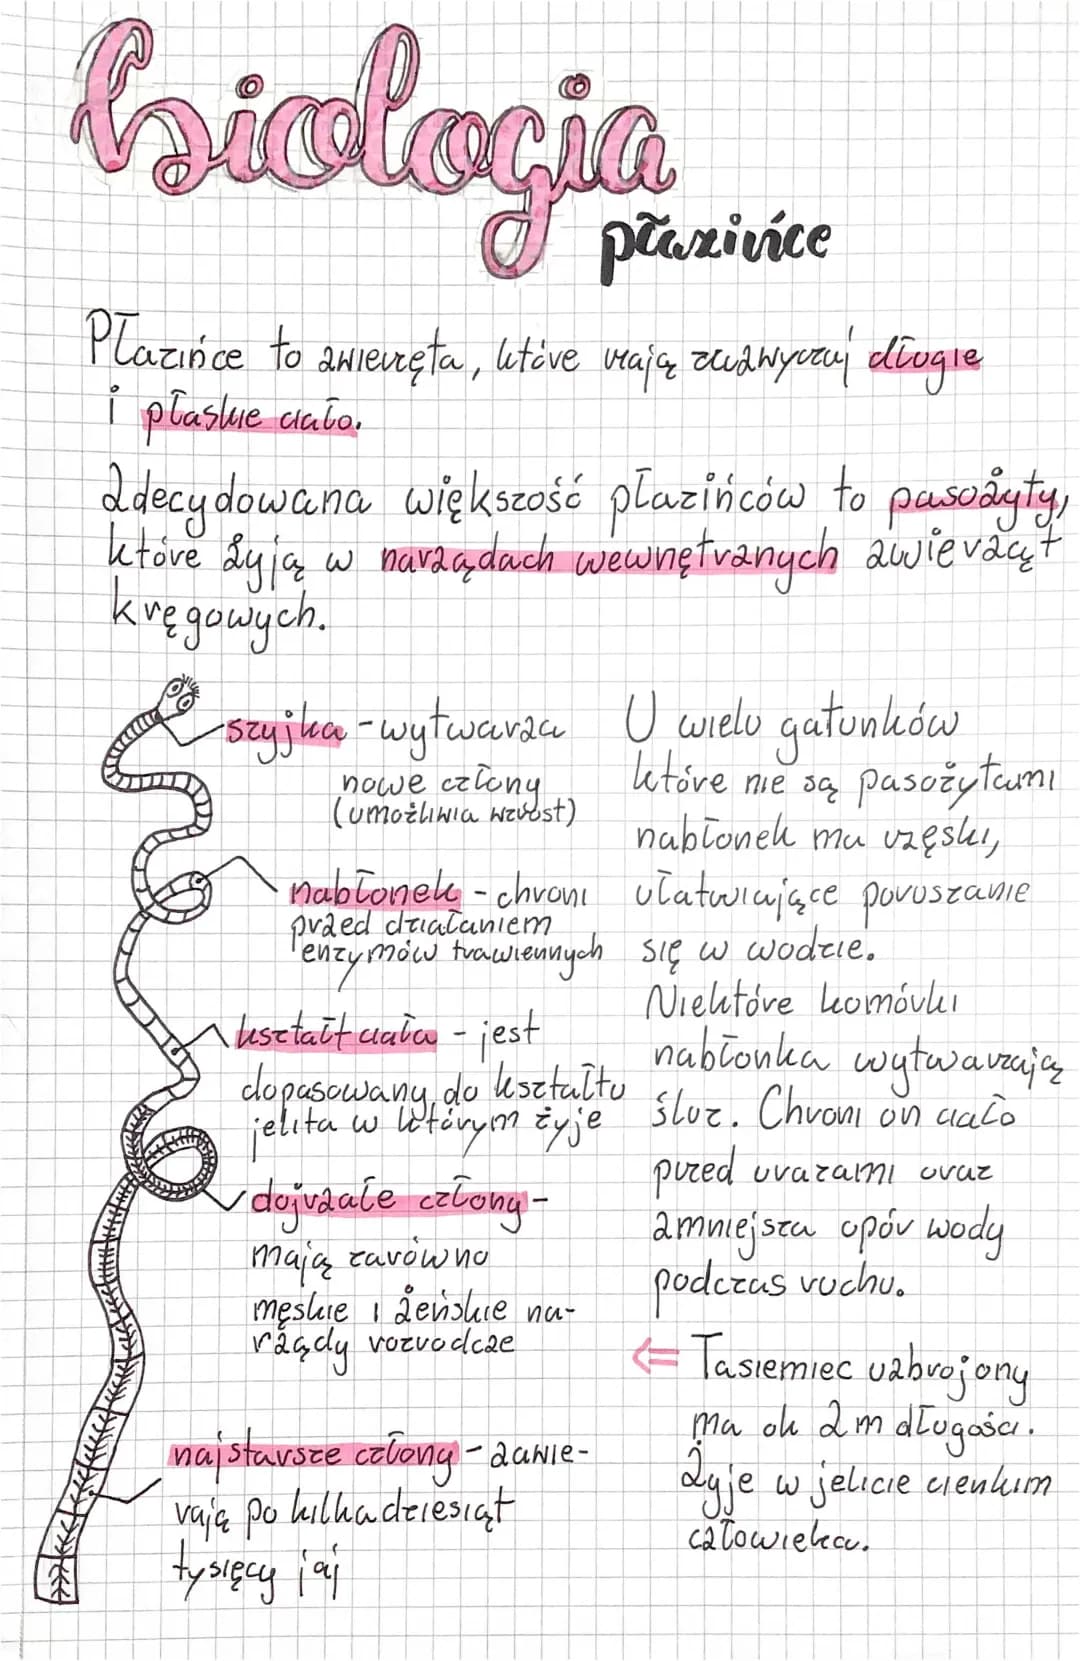 biologia
płazińce
Płazińce to zwierzęta, które mają zazwyczaj długie
i płaskie ciało.
Zdecydowana większość płazińców to pasożyty,
które żyją w narządach wewnętrznych zwierząt
kręgowych.
szyjka - wytwarza
nowe człony
(umożliwia wzrost)
nabłonek - chroni
przed działaniem
enzymów trawiennych
kształt ciała - jest
dopasowany do kształtu
jelita w którym żyje
dojrzałe człony -
mają zarówno
męskie i żeńskie na-
rządy rozrodcze
najstarsze człony - zawie-
rają po kilkadziesiąt
tysięcy jaj
U wielu gatunków
które nie są pasożytami
nabłonek ma rzęski,
ułatwiające poruszanie
się w wodzie.
Niektóre komórki
nabłonka wytwarzają
śluz. Chroni on ciało
przed urazami oraz
zmniejsza opór wody
podczas ruchu.
⇐ Tasiemiec uzbrojony
ma ok 2 m długości.
Żyje w jelicie cienkim
człowieka.